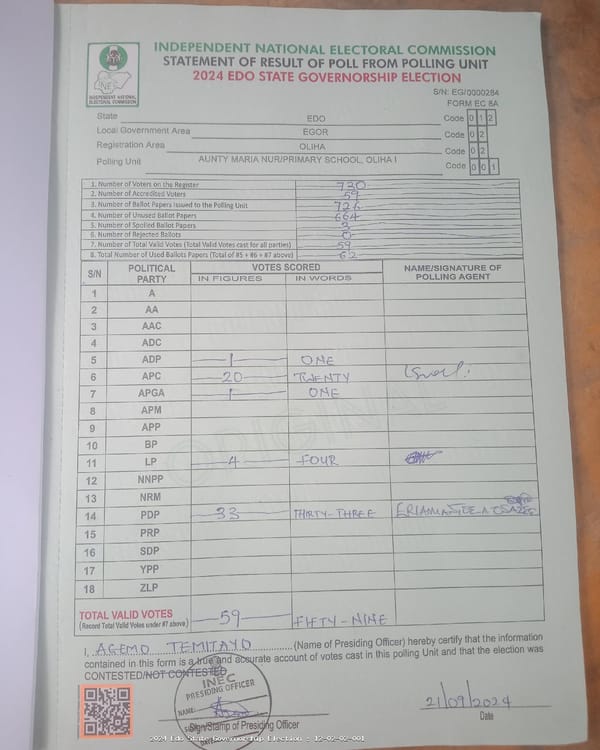 INDEPENDENT NATIONAL ELECTORAL COMMISSION
STATEMENT OF RESULT OF POLL FROM POLLING UNIT
2024 EDO STATE GOVERNORSHIP ELECTION
INEC
INDEPENDENT NATIONAL
ELECTORAL COMMISSION
S/N: EG/0000284
FORM EC 8A
State EDO Code 0 1 2
Local Government Area EGOR Code 0 2
Registration Area OLIHA Code 0 2
Polling Unit AUNTY MARIA NUR/PRIMARY SCHOOL, OLIHA I Code 0 0 1
1. Number of Voters on the Register 730
2. Number of Accredited Voters 59
3. Number of Ballot Papers Issued to the Polling Unit 726
4. Number of Unused Ballot Papers 664
5. Number of Spoiled Ballot Papers 3
6. Number of Rejected Ballots 0
7. Number of Total Valid Votes (Total Valid Votes cast for all parties) 59
8. Total Number of Used Ballots Papers (Total of #5 + #6 + #7 above) 62
S/N POLITICAL PARTY VOTES SCORED NAME/SIGNATURE OF POLLING AGENT
IN FIGURES IN WORDS
1 A
2 AA
3 AAC
4 ADC
5 ADP 1 ONE
6 APC 20 TWENTY
7 APGA 1 ONE
8 APM
9 APP
10 BP
11 LP 4 FOUR
12 NNPP
13 NRM
14 PDP 33 THIRTY-THREE
15 PRP
16 SDP
17 YPP
18 ZLP
ORIGINAL
TOTAL VALID VOTES 59 FIFTY-NINE
(Record Total Valid Votes under #7 above)
I, AGEMO TEMITAYO (Name of Presiding Officer) hereby certify that the information
contained in this form is a true and accurate account of votes cast in this polling Unit and that the election was
CONTESTED/NOT CONTESTED
INEC
PRESIDING OFFICER
NAME:
21/09/2024
Sign/Stamp of Presiding Officer Date
DATE
2024 Edo State Governorship Election - 12-02-02-001